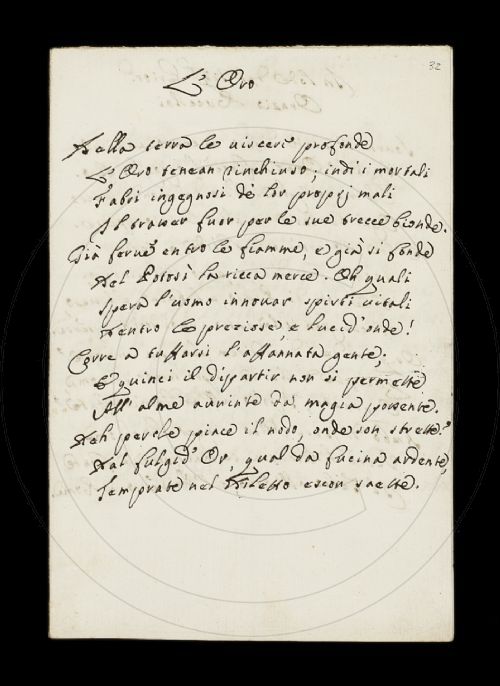 32
L'Oro
Della terra le viscere profonde
L'Oro tenean rinchiuso; indi i mortali
Fabri ingegnosi de' lor proprj mali
Il trasser fuor per le sue trecce bionde.
Già ferve entro le fiamme, e già si fonde
Del Potosì la ricca merce. Oh quali
Spera l'uomo innovar spirti vitali
Dentro le preziose, e lucid'onde!
Corre a tuffarsi l'affannata gente;
E quinci il dipartir non si permette
All'alme avvinte da magia possente.
Deh perche piace il nodo, onde son strette?
Dal fulgid'Or, qual da fucina ardente,
Temprate nel escon saette.